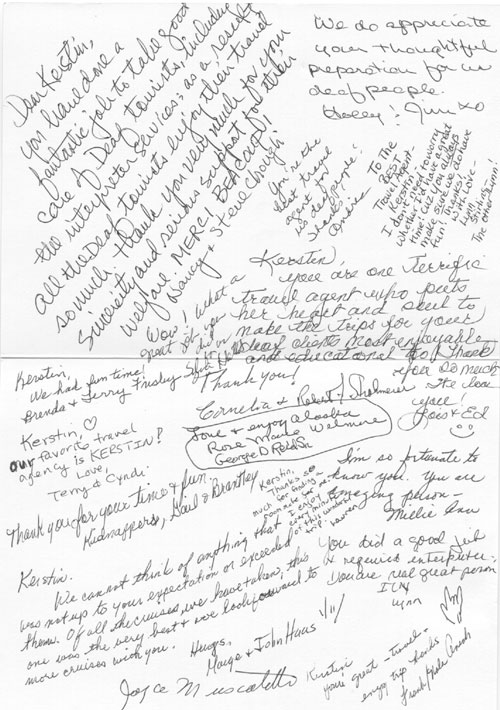 Dear Kerstin,
You have done a
fantastic job to take good
care of Deaf tourists, including
the interpreter services; as a result
all the Deaf tourists enjoy their travel
so much. Thank you very much for your
sincerity and serious support for their
welfare. MERCI BEAUCOUP!
Nancy & Steve Chough
We do appreciate
your thoughtful
preparation for us
deaf people.
Holly & Jim xo
You're the
best travel
agent for
us deaf people!
Thanks -
To The
BEST
Travel Agent-
Kerstin!
I don't ever to worry
whether I'd have a great
time; cuz you always
make sure we do have
fun! Thanks!
With Love-
Lynn
The other
Kerstin,
you are one terrific
travel agent who puts
her heart and soul to
make the trips for your
deaf clients most enjoyable
and educational too! Thank
you so much
We love
you!
Lois & Ed
Wow! What a
great job you
Thank you!
Cornelia & Robert
Kerstin,
We had fun time!
Brenda & Jerry
Kerstin,
our favorite travel
agency is KERSTIN!
Love,
Terry & Cyndi
Love & enjoy Alaska
Rose Marie
George D
Thank you for your time & fun.
Kidnappers, Gail & Brantley
Kerstin,
Thanks so
much for finding a
roommate for me.
I enjoy
every minute
of this wonderful
trip.
I'm so fortunate to
know you. You are
amazing person -
Millie Ann
Kerstin.
We cannot think of anything that
was not up to your expectation or exceeded
them. Of all the cruises we have taken, this
one was the very best & we look forward to
more cruises with you.
Hugs,
Marge & John Haas
You did a good job
& requires interpreter.
You are real great person
ILY
Lynn
Joyce
Kerstin
You're great - travel -
enjoy trip thanks